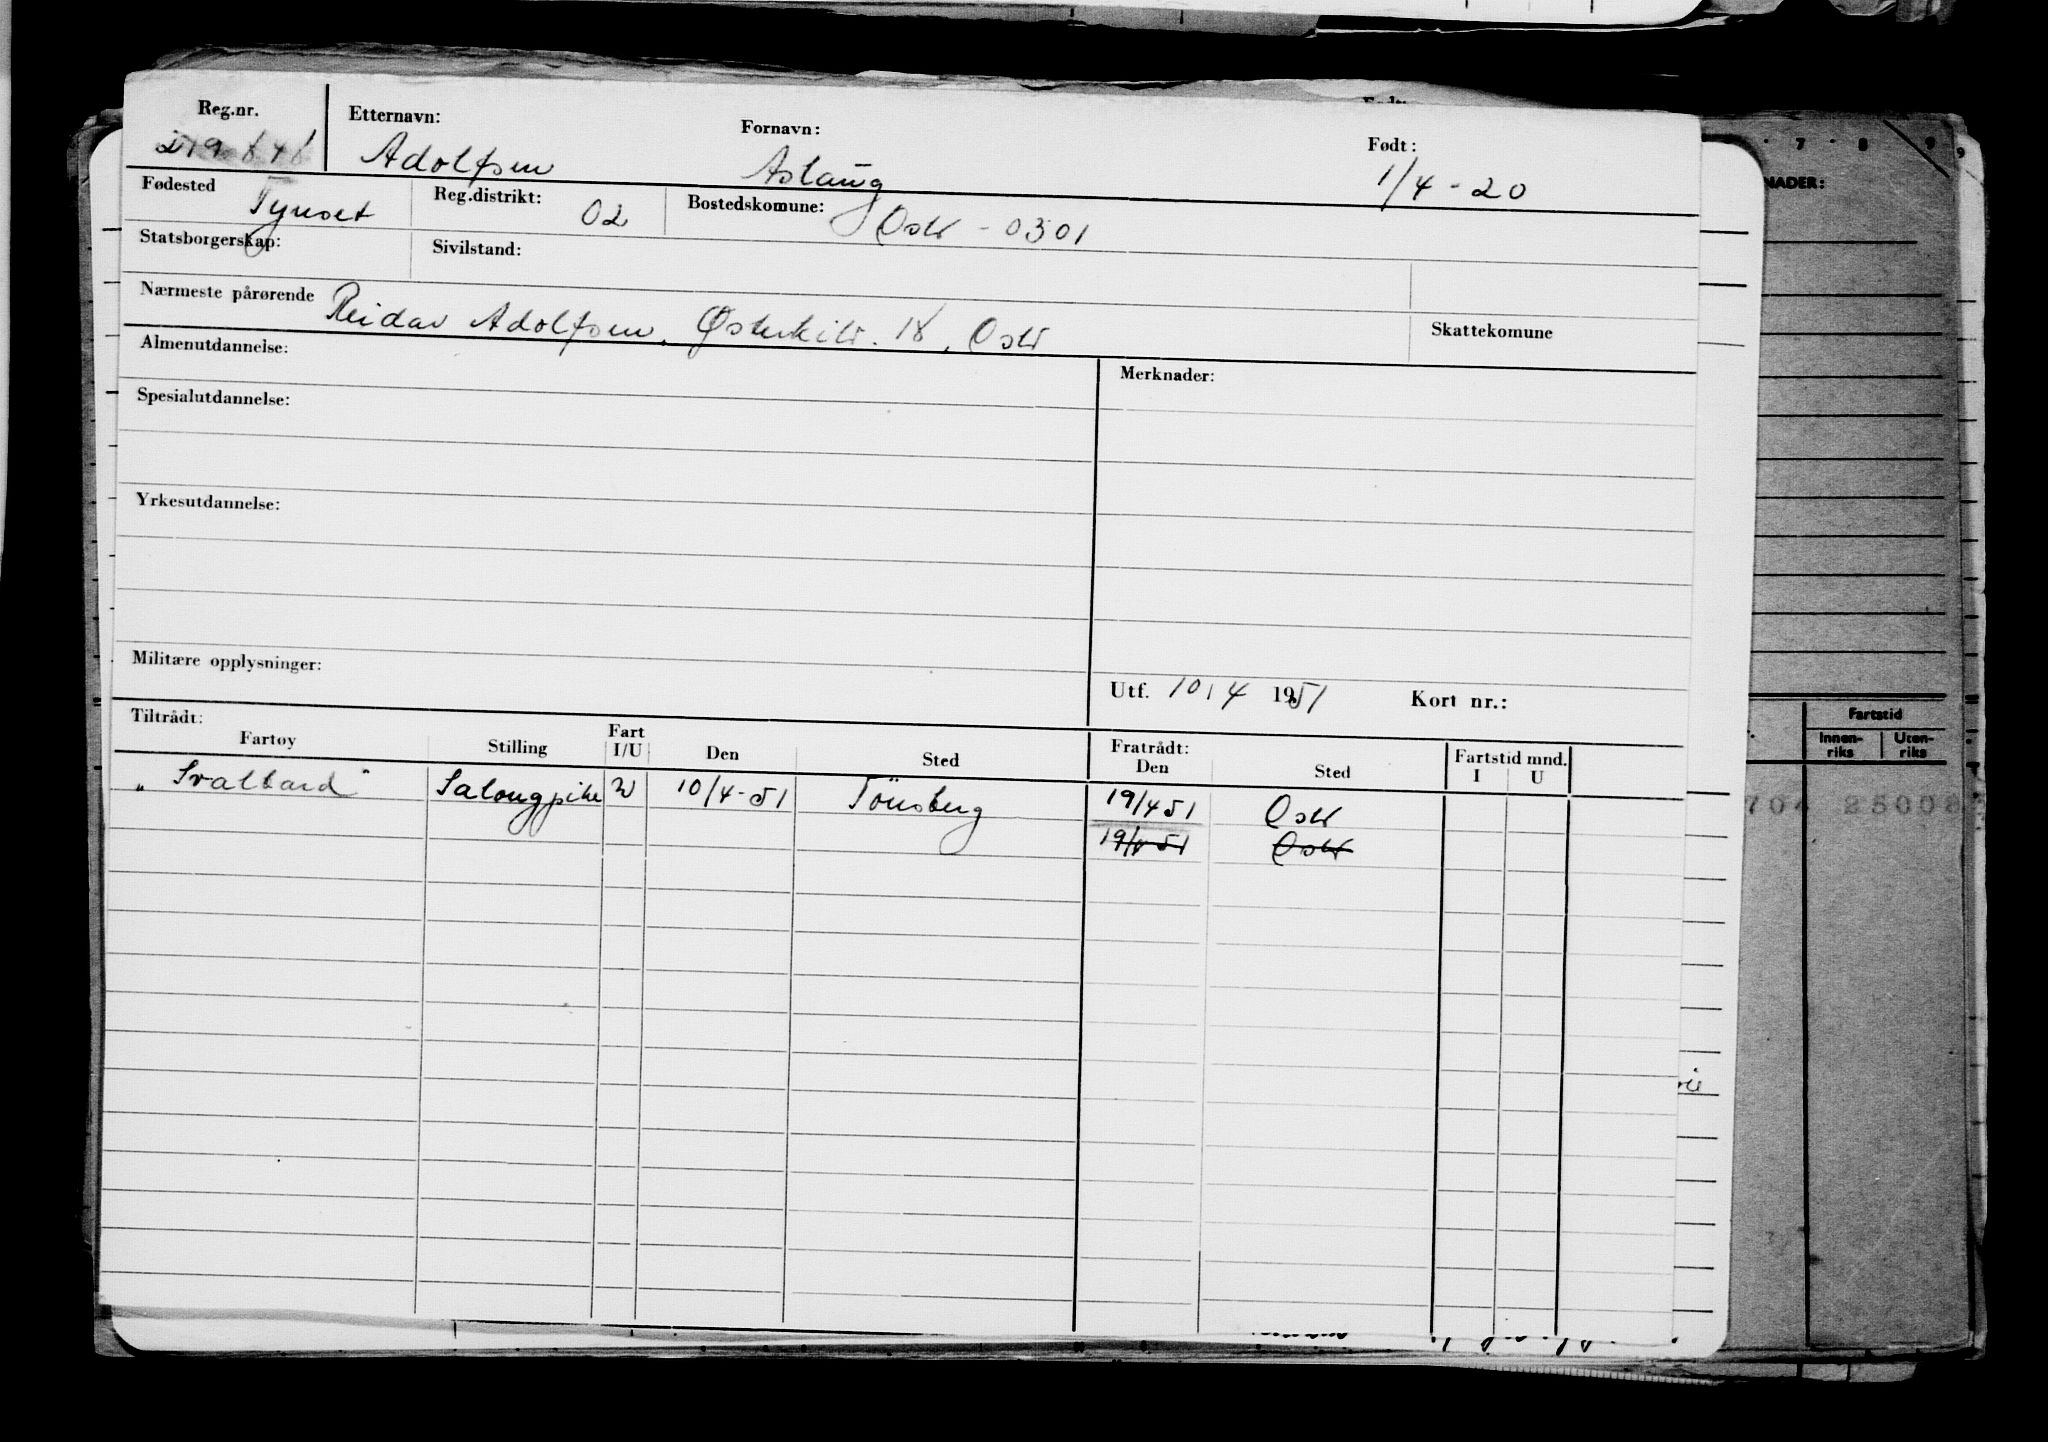 Reg.nr. Etternavn: Fornavn: Født:
Adolfsen Aslaug 1/4-20
Fødested Tynset Reg.distrikt: 02 Bostedskomune: Oslo - 0301
Statsborgerskap: Sivilstand:
Nærmeste pårørende Reidar Adolfsen, 18, Oslo Skattekomune
Almenutdannelse: Merknader:
Spesialutdannelse:
Yrkesutdannelse:
Militære opplysninger:
Utf. 10/4 1951 Kort nr.:
Tiltrådt: Fratrådt:
Fartøy Stilling Fart I/U Den Sted Den Sted Fartstid mnd. I U
"Svalbard" Salongpike U 10/4-51 Tönsberg 19/4 51 Oslo
19/4 51 Oslo
7 8 9 9
NADER:
Fartstid
Innen-riks Uten-riks
704 25008